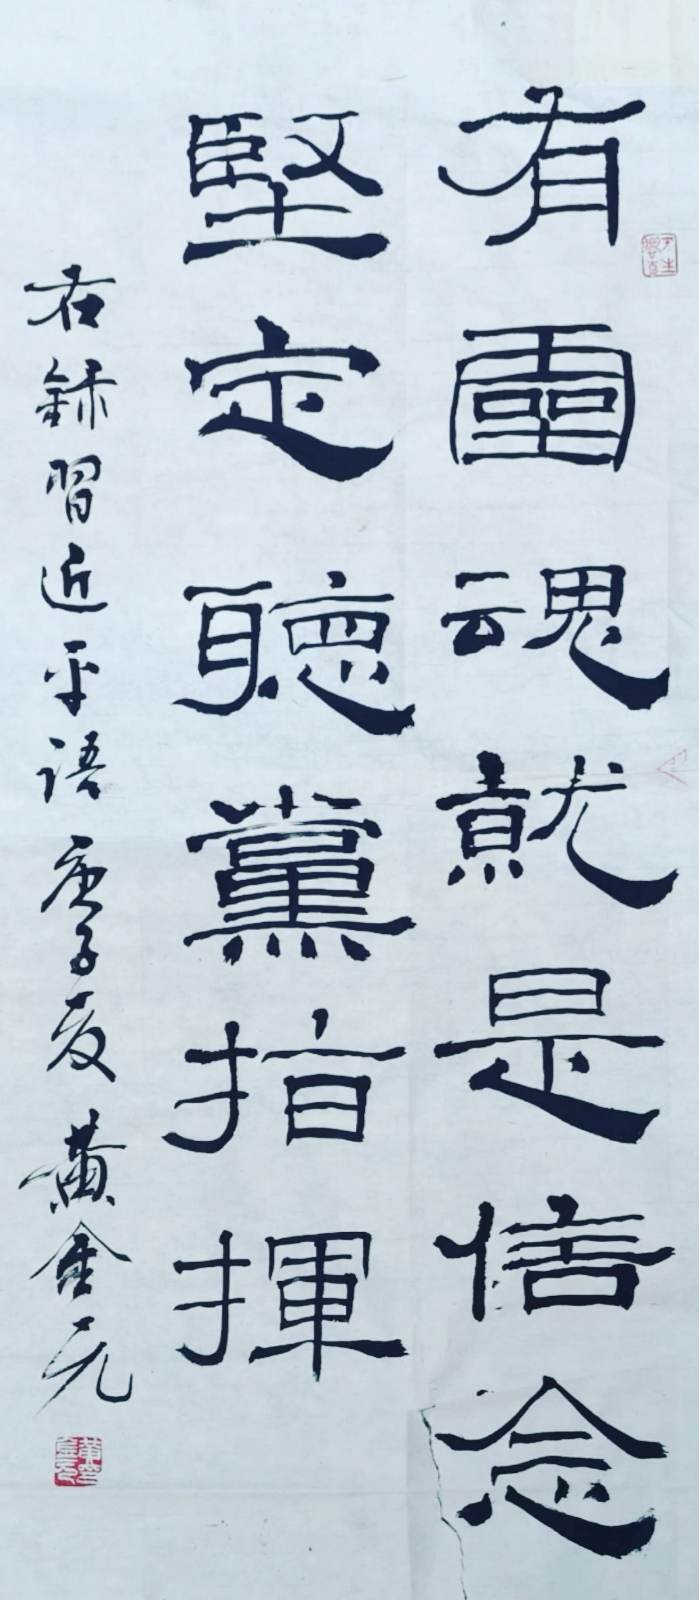 有靈魂就是信念
堅定聽黨指揮
右録習近平语庚子夏黄金元